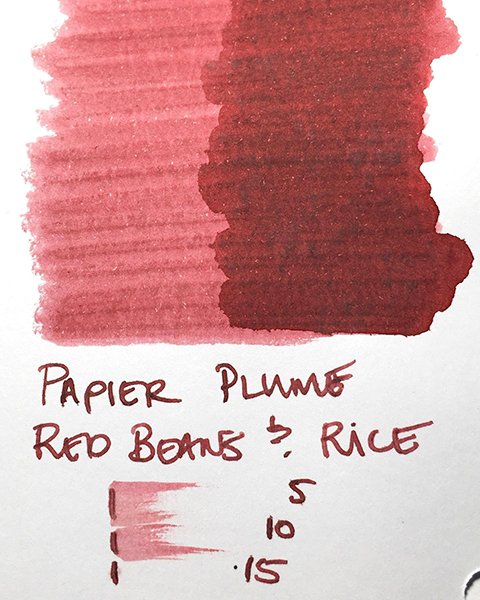 PAPIER PLUME
RED BEANS & RICE
5
10
15